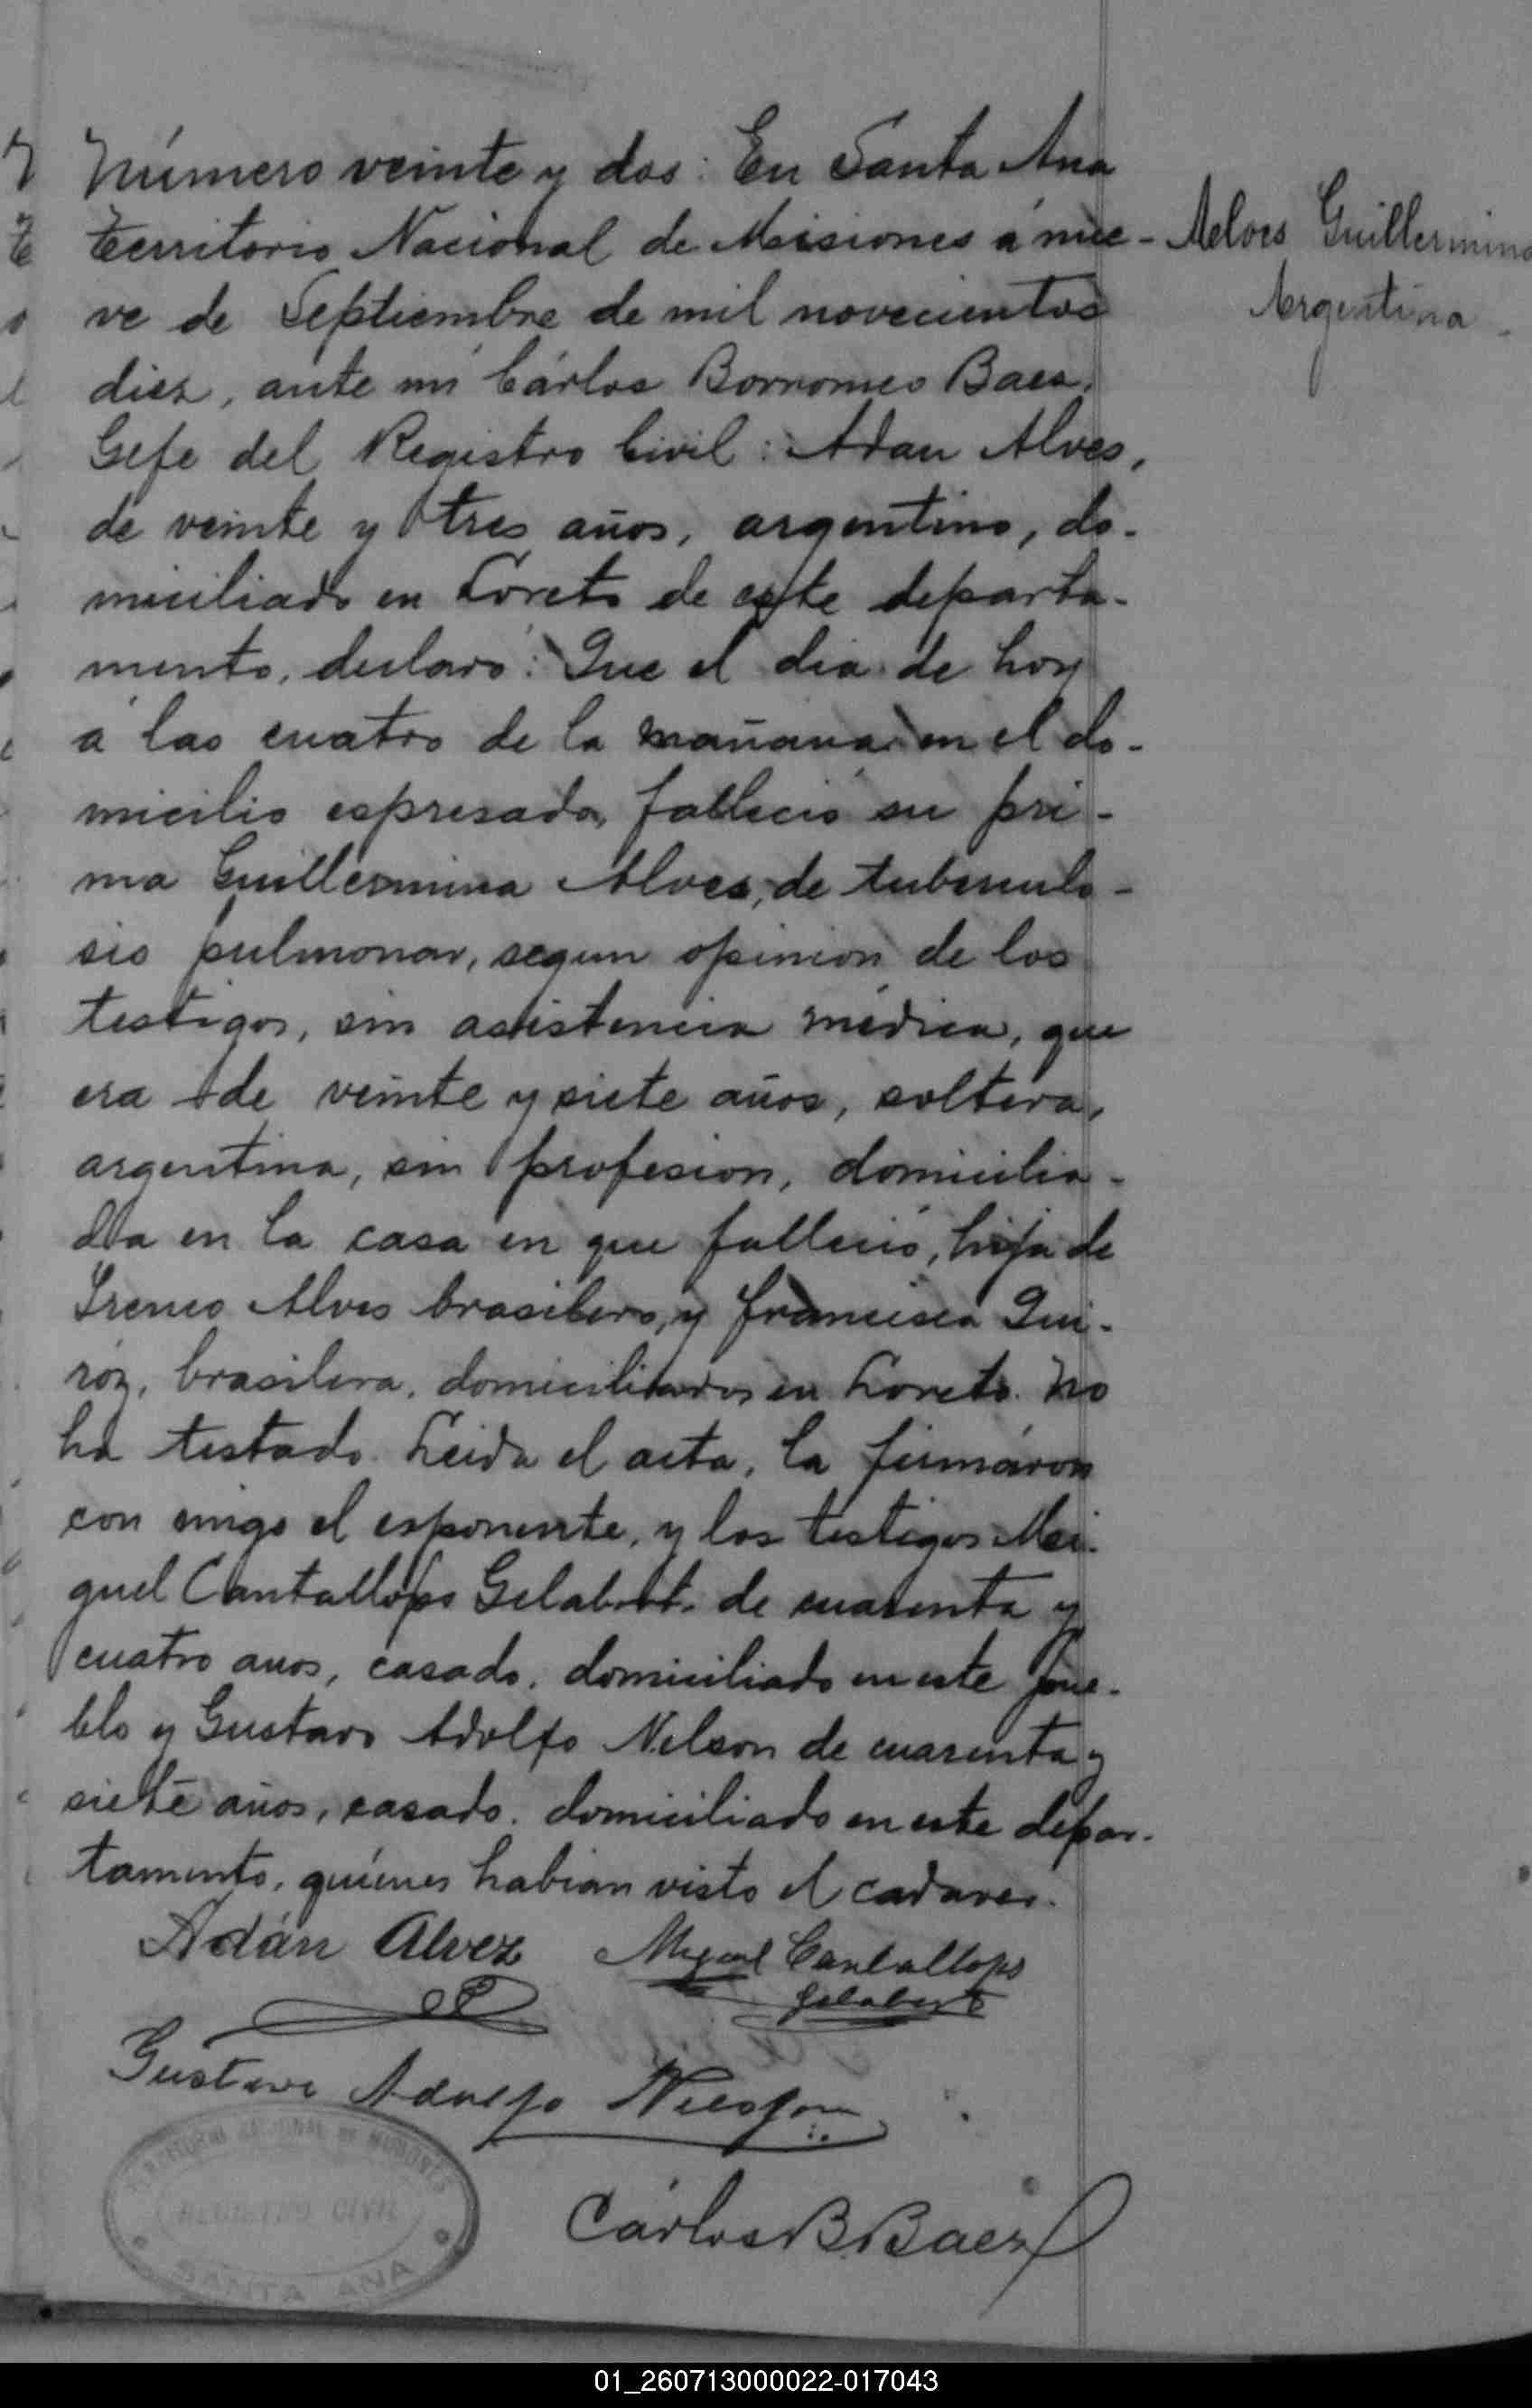 Número veinte y dos: En Santa Ana
territorio Nacional de Misiones á nue-
ve de Septiembre de mil novecientos
diez, ante mi Cárlos Borromeo Baez,
Gefe del Registro Civil: Adan Alves,
de veinte y tres años, argentino, do-
miciliado en Loreto de este departa-
mento, declaró: Que el dia de hoy
á las cuatro de la mañana en el do-
micilio espresado, falleció su pri-
ma Guillermina Alves, de tuberculo-
sis pulmonar, segun opinion de los
testigos, sin asistencia médica, que
era de veinte y siete años, soltera,
argentina, sin profesion, domicilia-
da en la casa en que falleció, hija de
Ireneo Alves brasilero, y Francisca Qui-
róz, brasilera, domiciliados en Loreto. No
ha testado. Leida el acta, la firmáron
con migo el esponente, y los testigos Mi-
guel Cantallops Gelabert, de cuarenta y
cuatro anos, casado, domiciliado en este pue-
blo y Gustavo Adolfo Nelson de cuarenta y
siete años, casado, domiciliado en este depar-
tamento, quiénes habian visto el cadaver.
Adán Alvez Miguel Cantallops
Gelabert
Gustavo Adolfo
Cárlos B. Baez
Guillermina
Argentina
TERRITORIO NACIONAL DE MISIONES
REGISTRO CIVIL
SANTA ANA
01_260713000022-017043